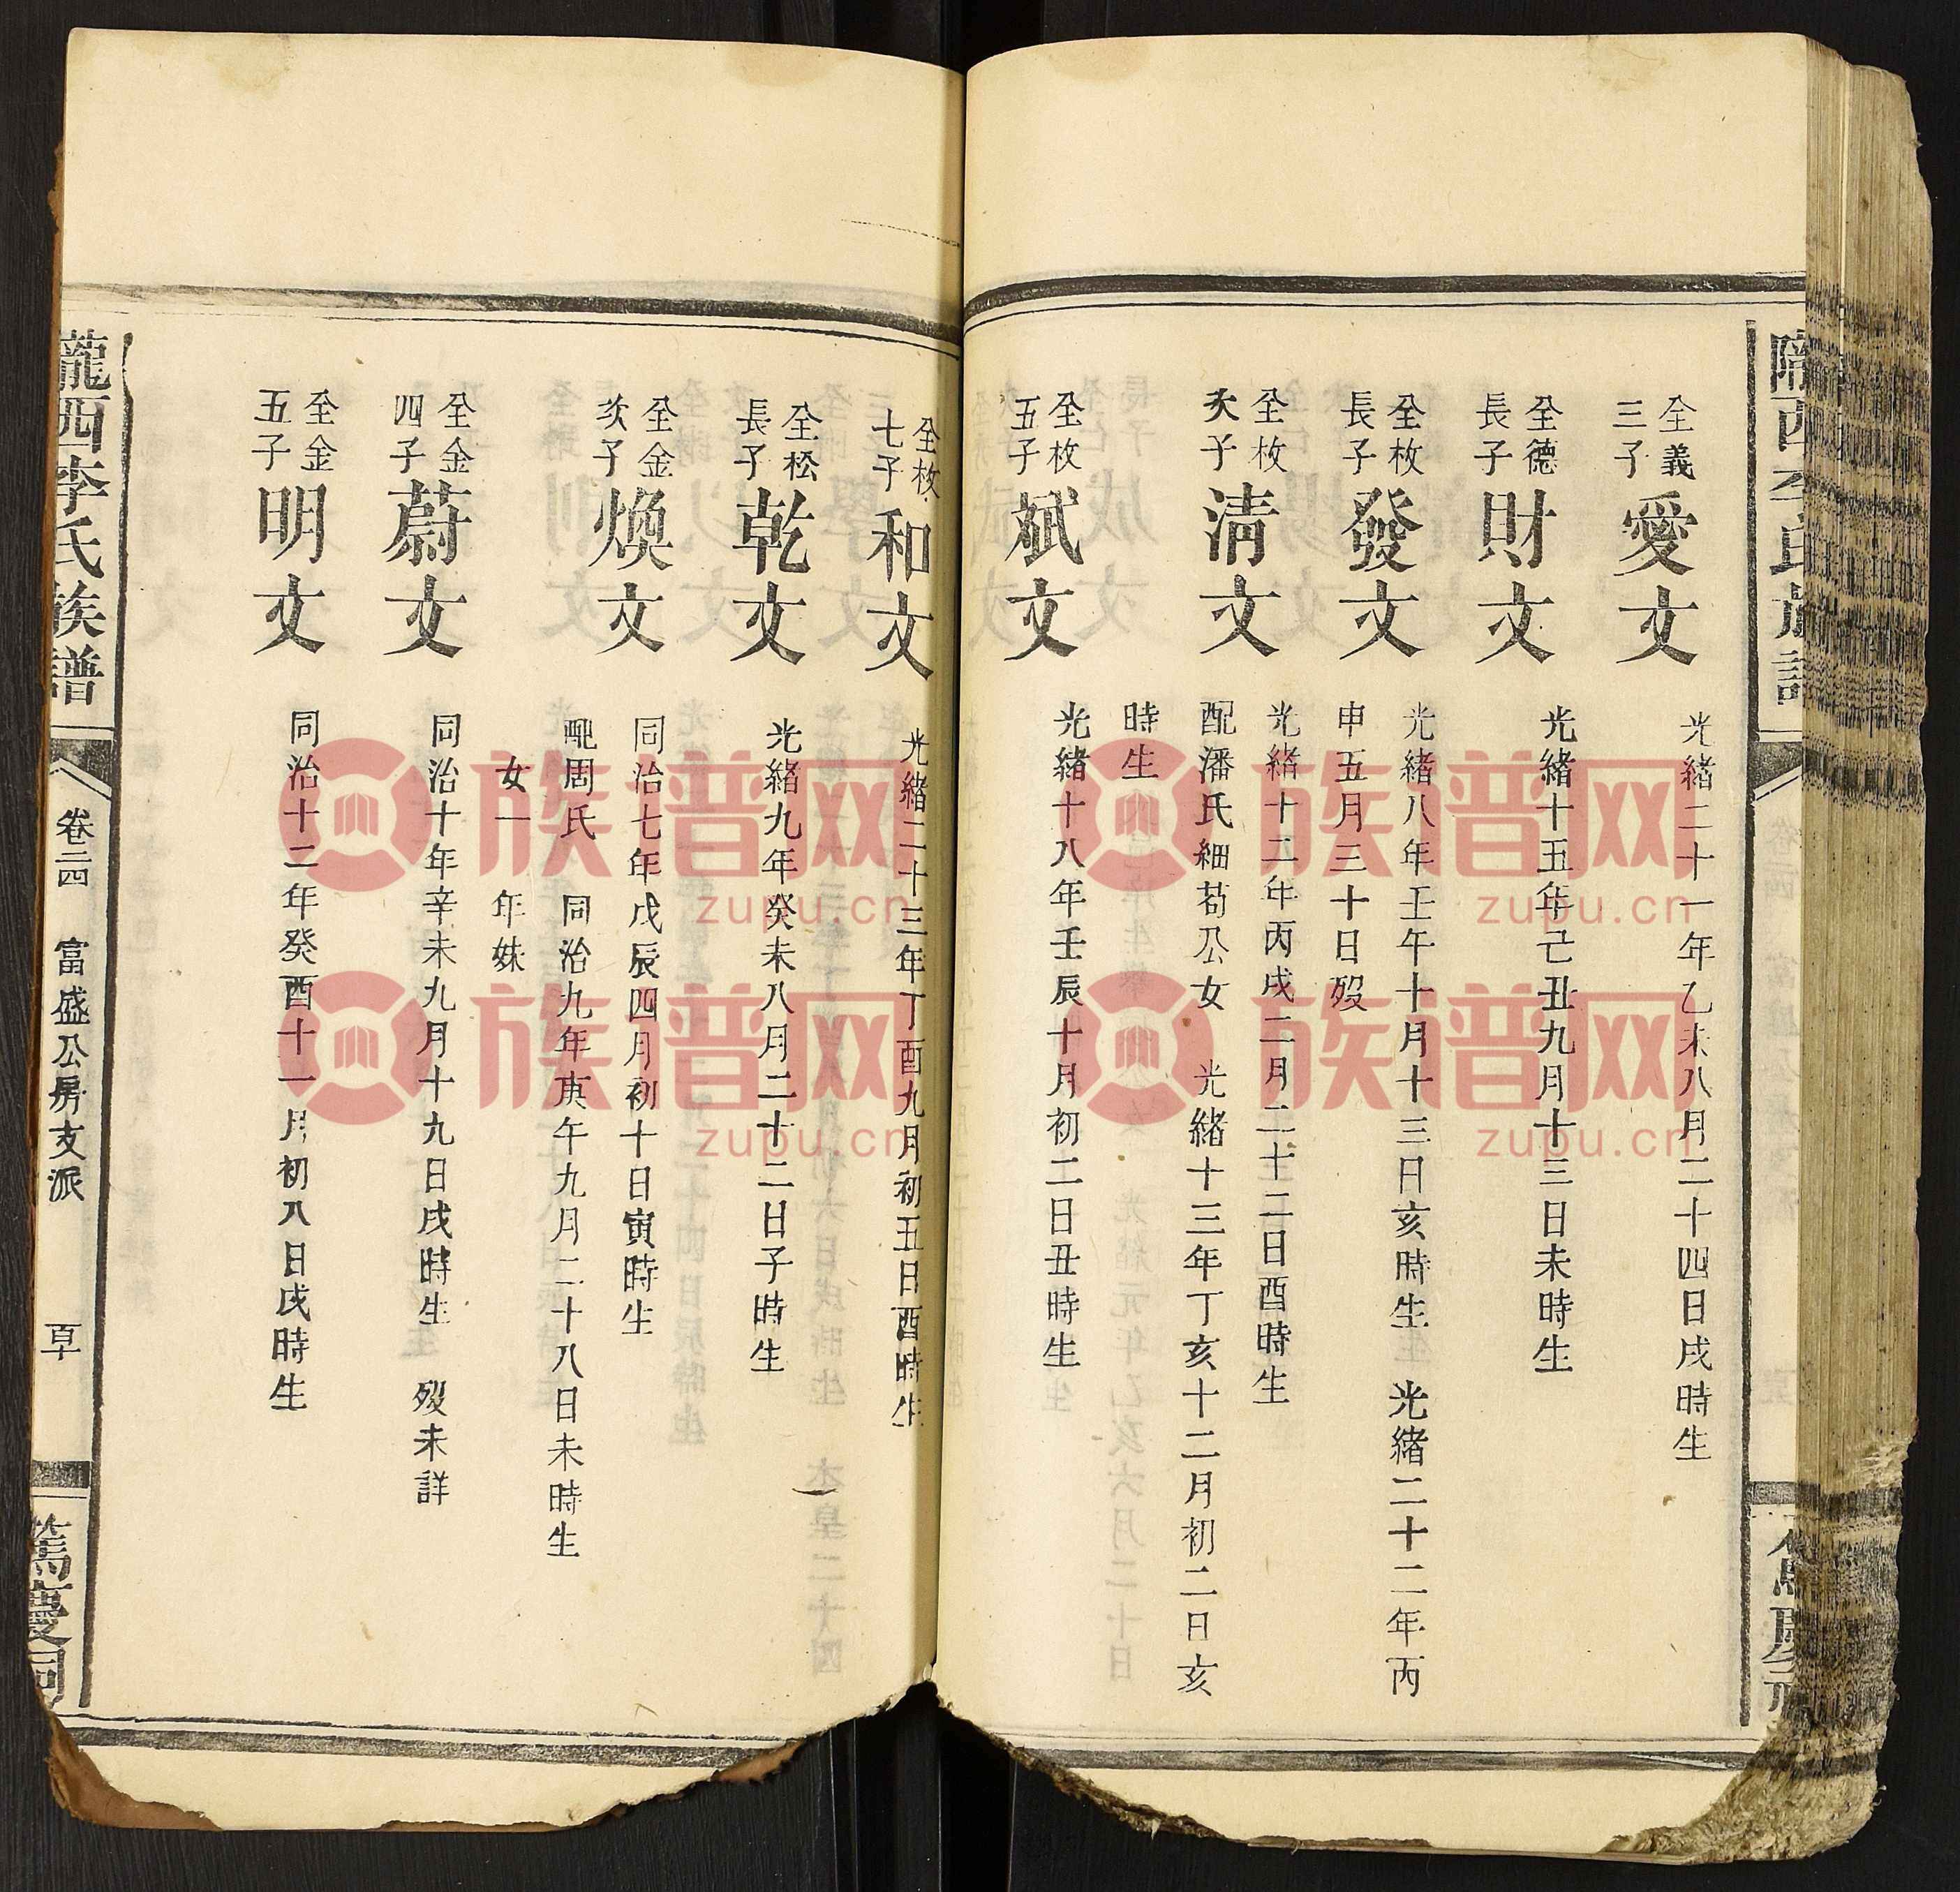 隴西李氏族譜
全義
三子
愛文
光緒二十一年乙未八月二十四日戌時生
全德
長子
財文
光緒十五年己丑九月十三日未時生
全枚
長子
發文
光緒八年壬午十月十三日亥時生 光緒二十二年丙
申五月三十日歿
全枚
次子
清文
光緒十二年丙戌二月二十二日酉時生
配潘氏細苟公女 光緒十三年丁亥十二月初二日亥
時生
全枚
五子
斌文
光緒十八年壬辰十月初二日丑時生
全枚
七子
和文
光緒二十三年丁酉九月初五日酉時生
全松
長子
乾文
光緒九年癸未八月二十二日子時生
全金
次子
煥文
同治七年戊辰四月初十日寅時生
配周氏 同治九年庚午九月二十八日未時生
女一 年妹
全金
四子
蔚文
同治十年辛未九月十九日戌時生 歿未詳
全金
五子
明文
同治十二年癸酉十一月初八日戌時生
隴西李氏族譜
卷二四 富盛公房支派
篤慶祠
族譜网
zupu.cn
族譜网
zupu.cn
族譜网
zupu.cn
族譜网
zupu.cn